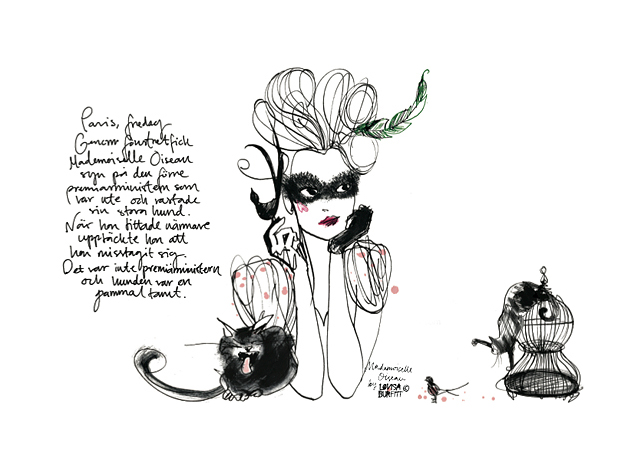 Paris, fredag
Genom fönstret fick
Mademoiselle Oiseau
syn på den förre
premiärministern som
var ute och rastade
sin stora hund.
När hon tittade närmare
upptäckte hon att
hon misstagit sig.
Det var inte premiärministern
och hunden var en
gammal tant.
Mademoiselle
Oiseau
by LOVISA ©
BURFITT